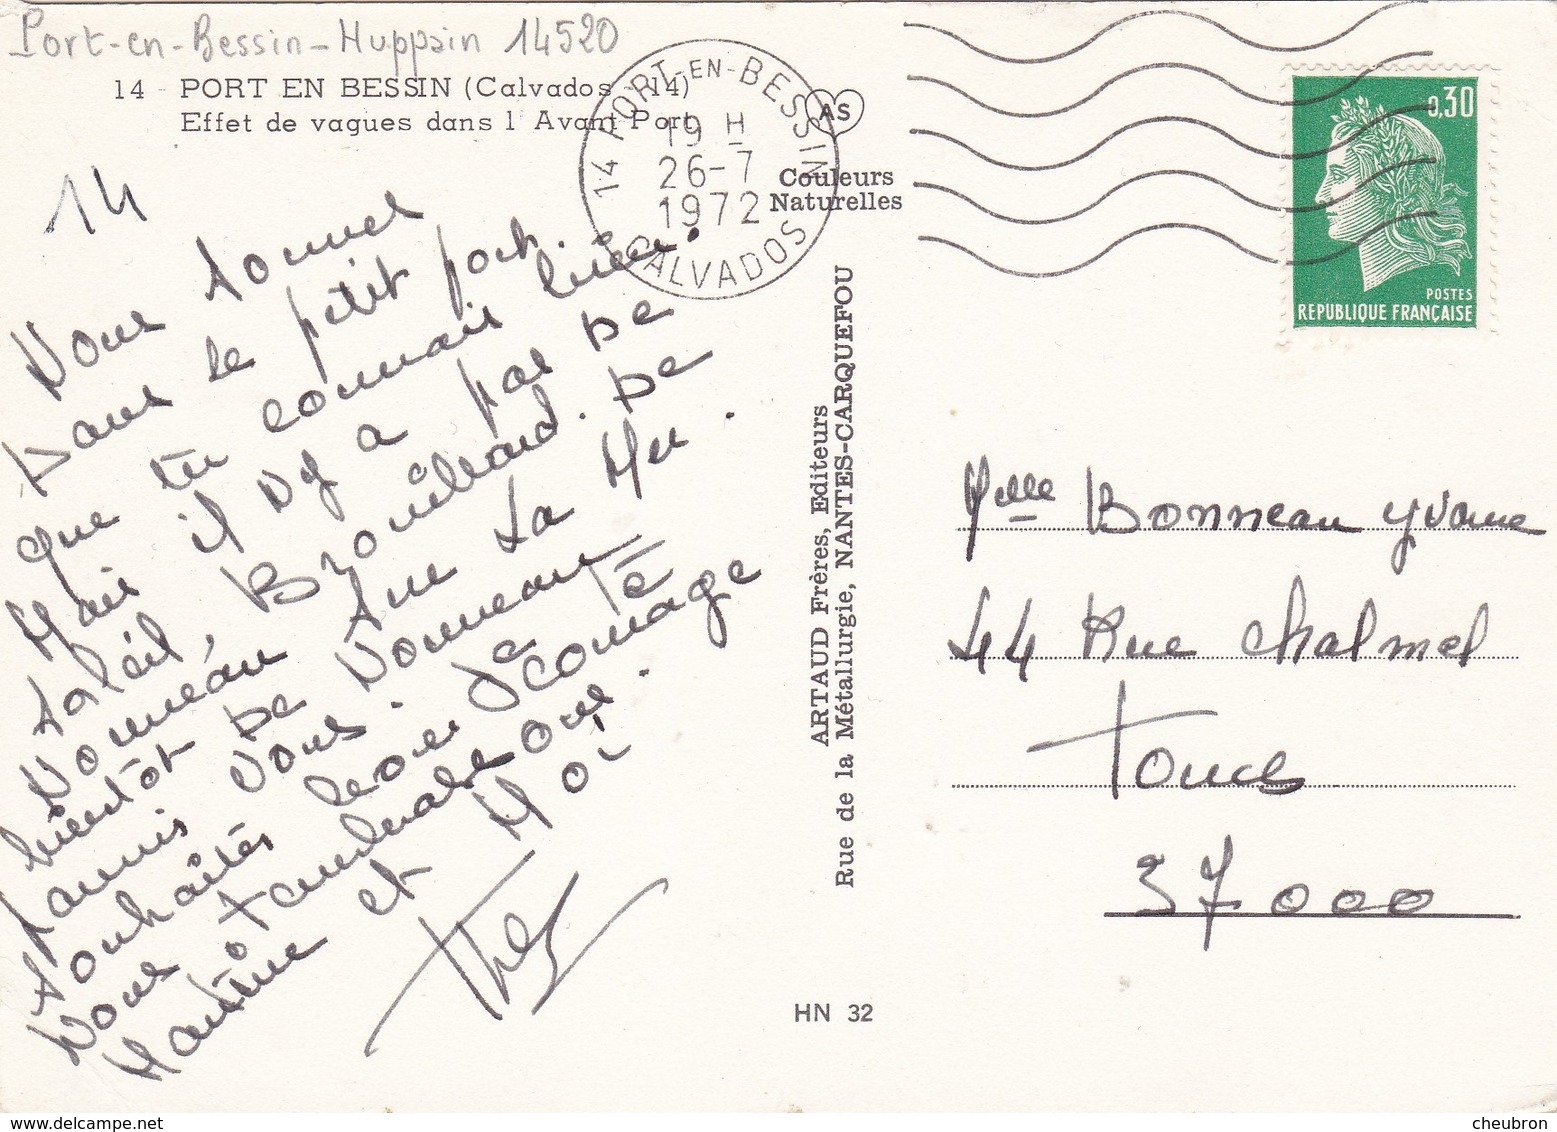 Port-en-Bessin-Huppain 14520
14 - PORT EN BESSIN (Calvados - 14)
Effet de vagues dans l'Avant Port
14 PORT-EN-BESSIN
19 H
26-7
1972
CALVADOS
AS
Couleurs
Naturelles
0,30
POSTES
REPUBLIQUE FRANÇAISE
14
Nous sommes
dans le petit port.
que tu connais bien.
Mais il ny a pas de
soleil, Brouillard. de
nouveau sur la Mer.
bientôt de nouveau
parmis vous. Je té
souhaites bon
Nous
Martine et Moi
ARTAUD Frères, Editeurs
Rue de la Métallurgie, NANTES-CARQUEFOU
Melle Bonneau Yvonne
44 Rue Chalmel
Tours
37000
HN 32
cheubron